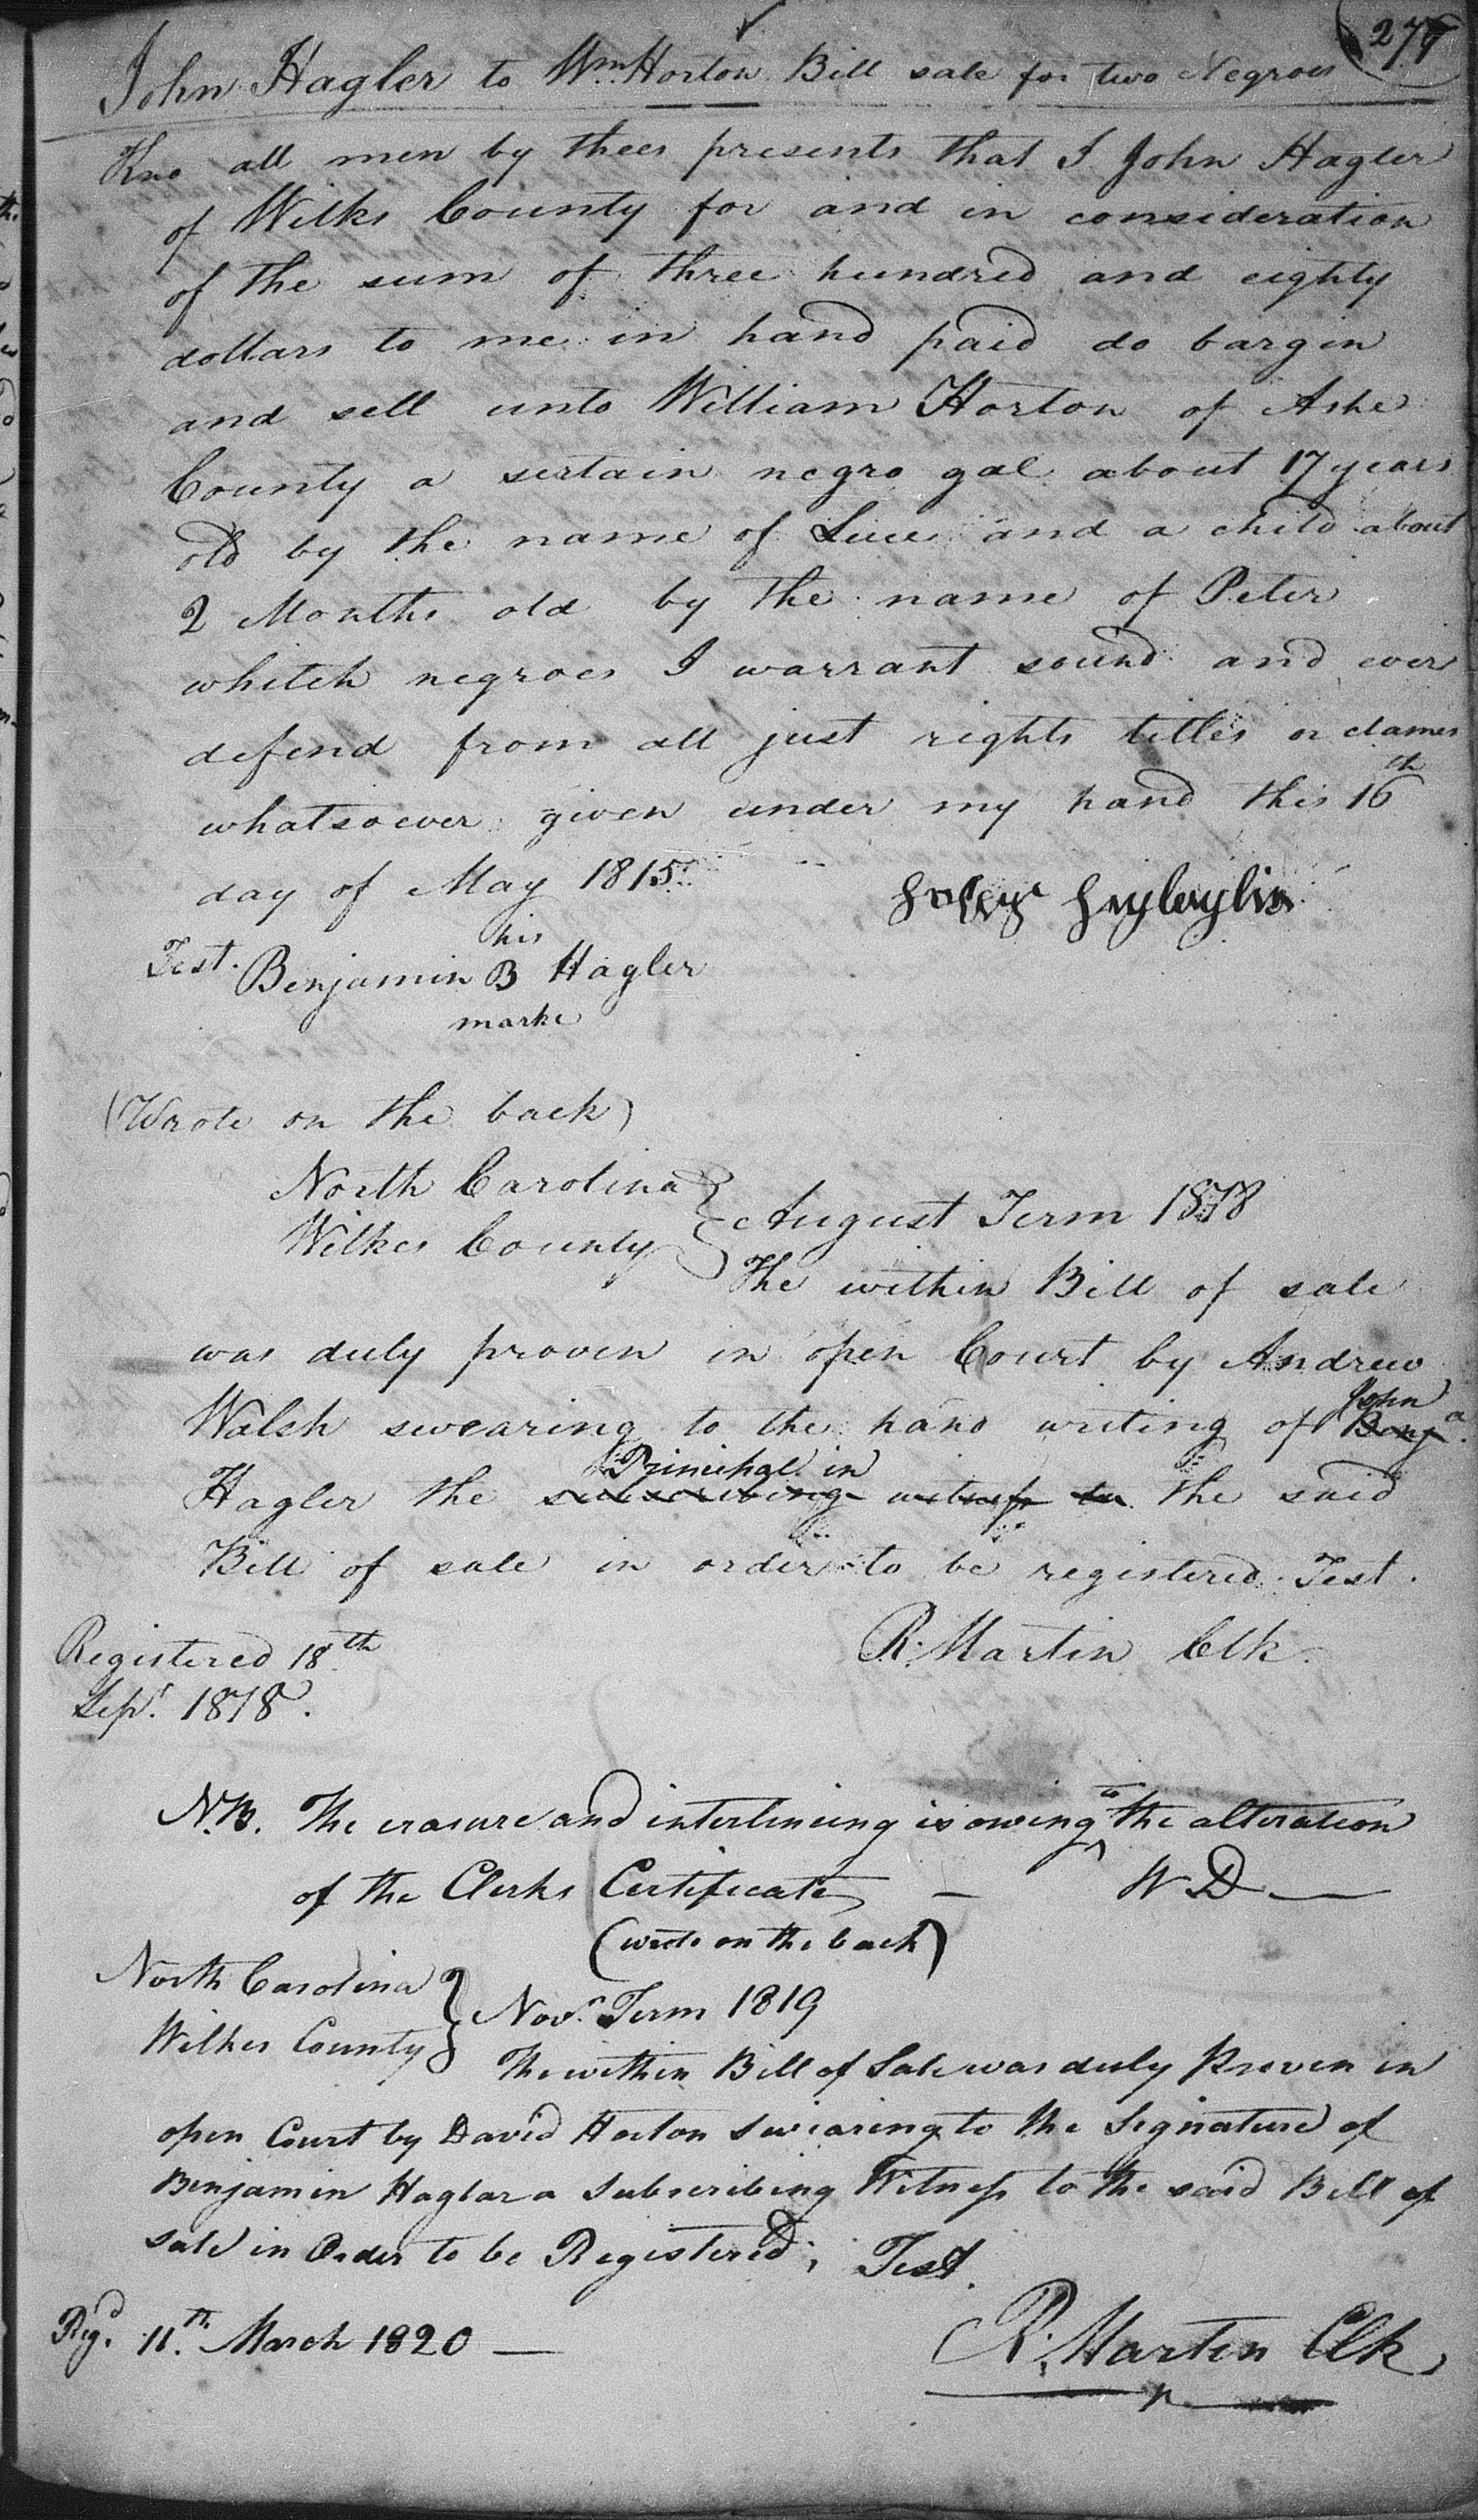 277
John Hagler to Wm Horton Bill sale for two Negroes
Kno all men by thees presents that I John Hagler
of Wilks County for and in consideration
of the sum of three hundred and eighty
dollars to me in hand paid do bargin
and sell unto William Horton of Ashe
County a sertain negro gal about 17 years
old by the name of Luce and a child about
2 Months old by the name of Peter
whitch negroes I warrant sound and ever
defend from all just rights titles or clames
whatsoever given under my hand this 16th
day of May 1815
his
Test. Benjamin B Hagler
marke
(Wrote on the back)
North Carolina
Wilkes County
August Term 1818
The within Bill of sale
was duly proven in open Court by Andrew
Walsh swearing to the hand writing of John Benja.
Hagler the subscribing witness to Principal in the said
Bill of sale in order to be registered. Test.
R. Martin Clk.
Registered 18th
Sept. 1818.
N.B. The erasure and interlineing is owing to the alteration
of the Clerks Certificate — W D —
(wrote on the back)
North Carolina
Wilkes County
Novr. Term 1819
The within Bill of Sale was duly Proven in
open Court by David Horton swearing to the Signature of
Benjamin Haglar a Subscribing Witness to the said Bill of
sale in Order to be Registered, Test.
Regd. 11th. March 1820 —
R. Martin Clk